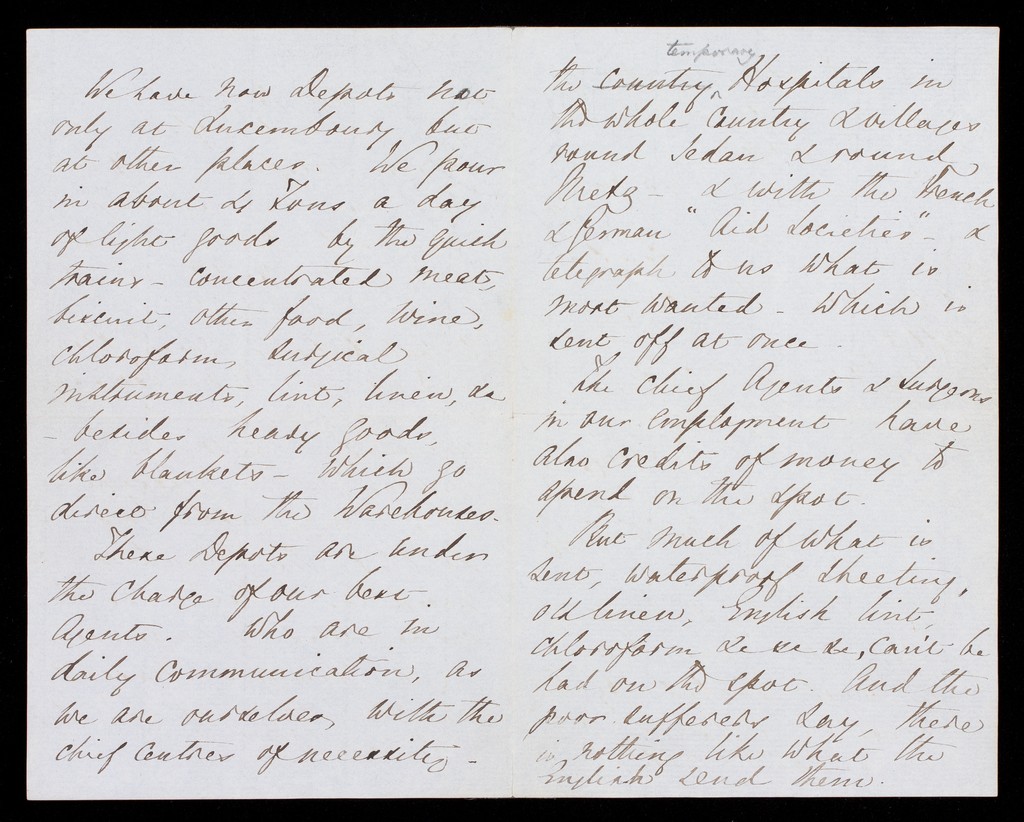 We have now Depots not
only at Luxembourg but
at other places. We pour
in about 4 Tons a day
of light goods by the quick
trains - concentrated meat,
biscuit, other food, wine,
chloroform, surgical
instruments, lint, linen, &c
- besides heavy goods,
like blankets - which go
direct from the Warehouses.
These Depots are under
the charge of our best
Agents. Who are in
daily communication, as
we are ourselves, with the
chief centres of necessity -
temporary
the country ^ Hospitals in
the whole country & villages
round Sedan & round
Metz - & with the French
& German "Aid Societies" - &
telegraph to us what is
most wanted - which is
sent off at once.
The chief Agents & Surgeons
in our employment have
also credits of money to
spend on the spot.
But much of what is
sent, waterproof sheeting,
old linen, English lint,
chloroform &c &c &c, can't be
had on the spot. And the
poor sufferers say, there
is nothing like what the
English send them.